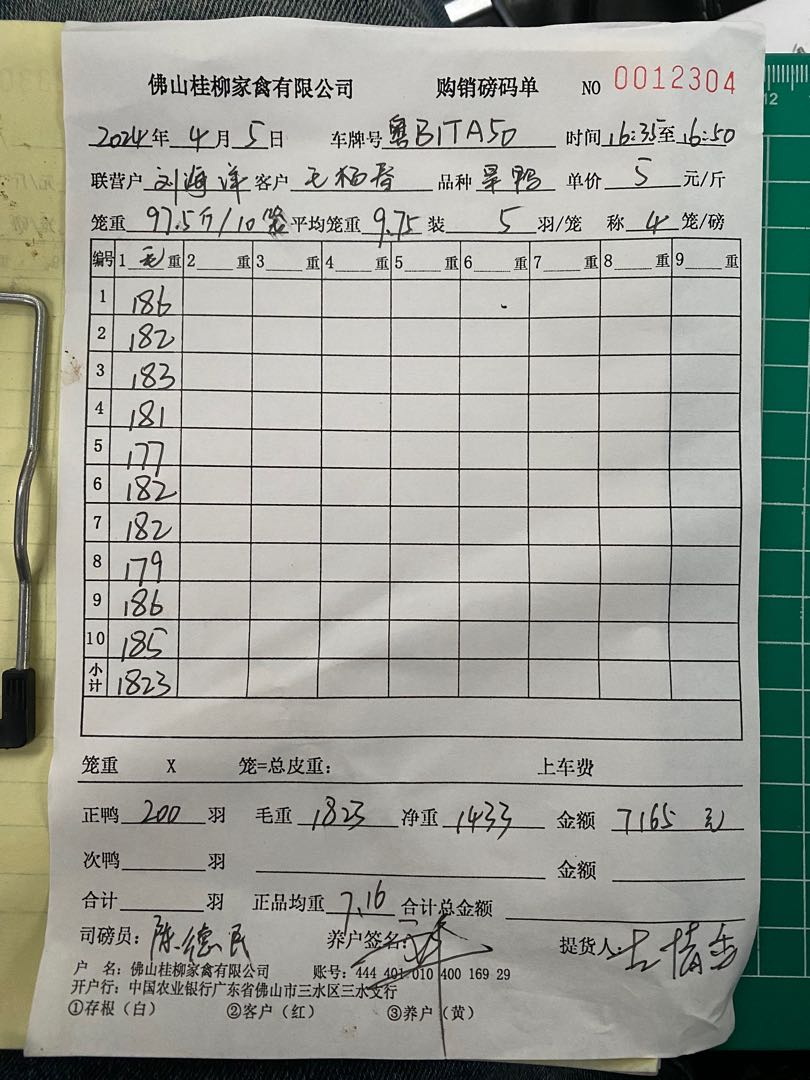 佛山桂柳家禽有限公司 购销磅码单 NO 0012304
2024年 4月 5日 车牌号 粤B1TA50 时间 16:35至16:50
联营户 刘海洋 客户 毛杨春 品种 旱鸭 单价 5 元/斤
笼重 97.5斤/10笼 平均笼重 9.75 装 5 羽/笼 称 4 笼/磅
编号 1 毛 重 2 重 3 重 4 重 5 重 6 重 7 重 8 重 9 重
1 186
2 182
3 183
4 181
5 177
6 182
7 182
8 179
9 186
10 185
小计 1823
笼重 X 笼=总皮重: 上车费
正鸭 200 羽 毛重 1823 净重 1433 金额 7165 元
次鸭 羽 金额
合计 羽 正品均重 7.16 合计总金额
司磅员: 陈德民 养户签名: 提货人:
户 名: 佛山桂柳家禽有限公司 账号: 444 401 010 400 169 29
开户行: 中国农业银行广东省佛山市三水区三水支行
①存根（白） ②客户（红） ③养户（黄）